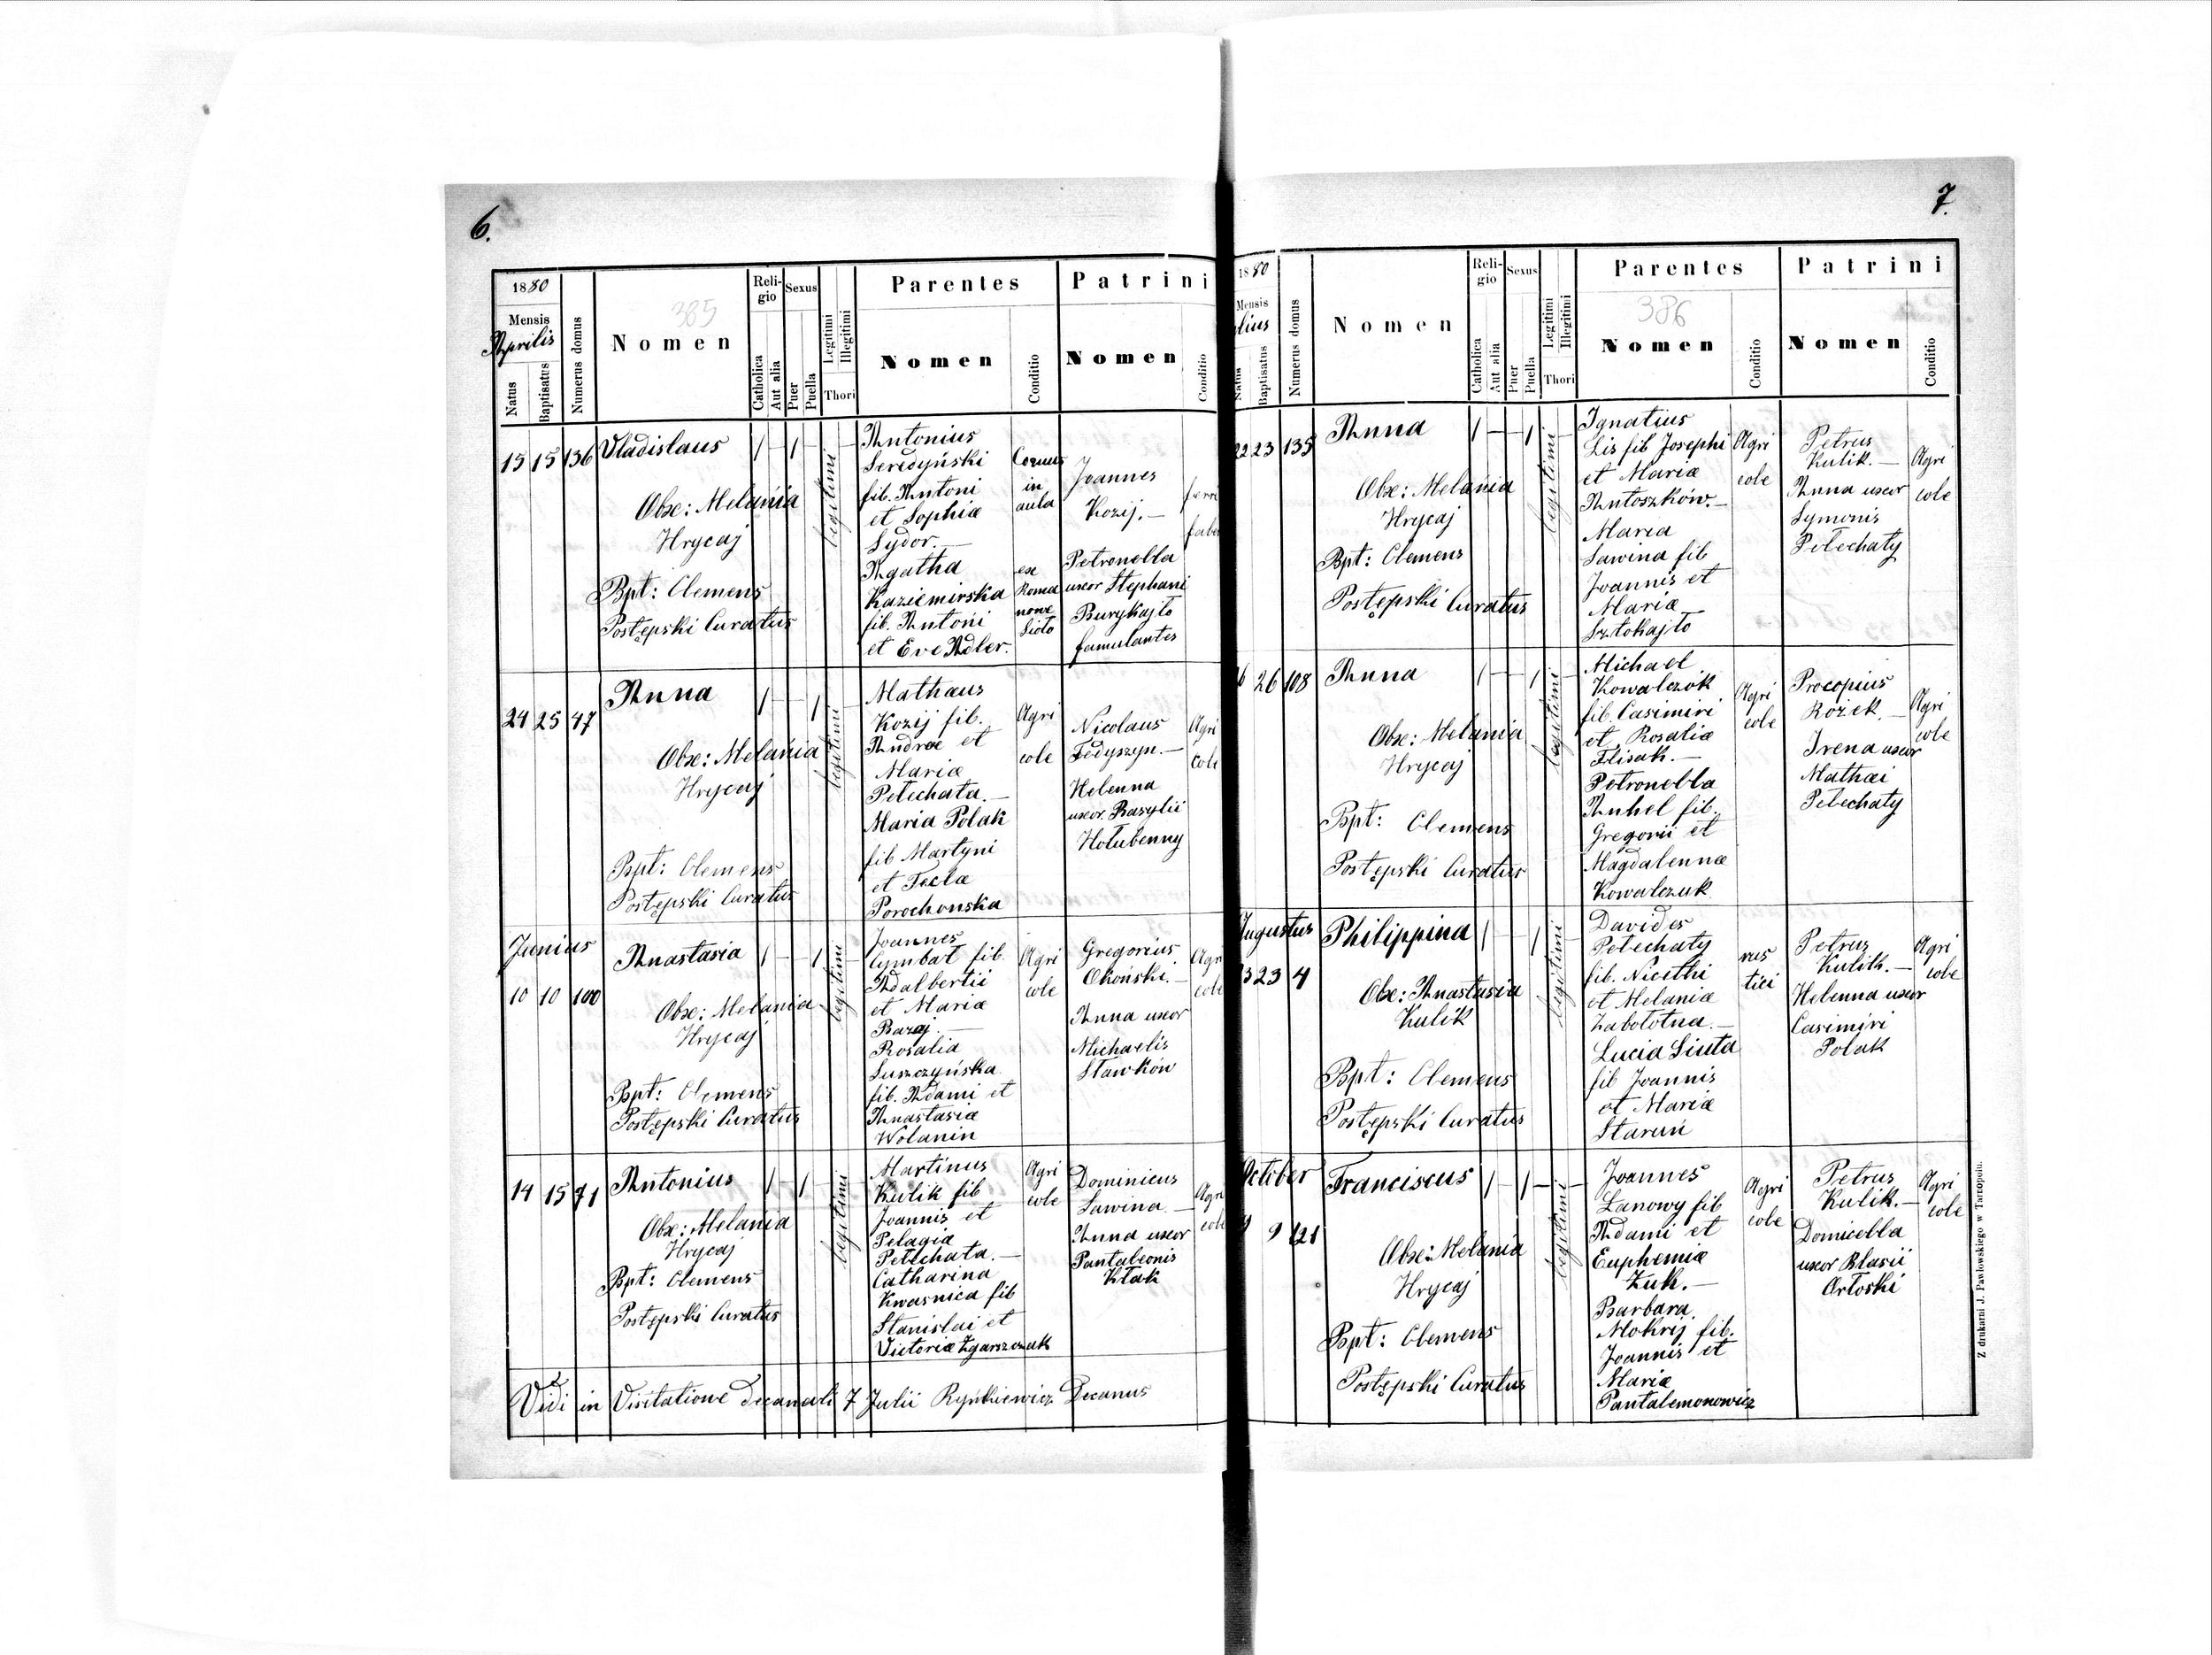 6.
1880
Mensis
Aprilis
Natus
Baptisatus
Numerus domus
385
Nomen
Religio
Catholica
Aut alia
Sexus
Puer
Puella
Legitimi
Illegitimi
Thori
Parentes
Nomen
Conditio
Patrini
Nomen
Conditio
15 15 136 Vladislaus
Obx: Melania
Hrycaj
Bpt: Clemens
Postępski Curatus
legitimi
Antonius
Seredyński
fib. Antoni
et Sophiæ
Sydor.—
Agatha
Kaziemirska
fib. Antoni
et Eve Adler.
in
aula
ex
Roma
nowe
Sioło
Joannes
Kozij.—
Petronella
uxor Stephani
Burykajło
famulantes
ferri
faber
24 25 47 Anna
Obx: Melania
Hrycaj
Bpt: Clemens
Postępski Curatus
legitimi
Mathæus
Kozij fib.
Andreæ et
Mariæ
Pelechata.—
Maria Polak
fib Martyni
et Teclæ
Porochonska
Agri
cole
Nicolaus
Fedyszyn.—
Helenna
uxor Basylii
Hołubenny
Agri
cole
Junius
10 10 100 Anastasia
Obx: Melania
Hrycaj
Bpt: Clemens
Postępski Curatus
legitimi
Joannes
Cymbał fib.
Adalbertii
et Mariæ
Baraj.—
Rosalia
Suszczyńska
fib. Adami et
Anastasiæ
Wolanin
Agri
cole
Gregorius
Okoński.—
Anna uxor
Michaelis
Sławków
Agri
cole
14 15 71 Antonius
Obx: Melania
Hrycaj
Bpt: Clemens
Postępski Curatus
legitimi
Martinus
Kulik fib
Joannis et
Pelagia
Pelechata.—
Catharina
Kwasnica fib
Stanislai et
Victoriæ Zgarszczuk
Agri
cole
Dominicus
Sawina.—
Anna uxor
Pantaleonis
Kłak
Agri
cole
Vidi in Visitatione decanali 7 Julii Rynkiewicz Decanus
7.
1880
Mensis
lius
Natus
Baptisatus
Numerus domus
Nomen
Religio
Catholica
Aut alia
Sexus
Puer
Puella
Legitimi
Illegitimi
Thori
Parentes
386
Nomen
Conditio
Patrini
Nomen
Conditio
22 23 135 Anna
Obx: Melania
Hrycaj
Bpt: Clemens
Postępski Curatus
legitimi
Ignatius
Lis fib Josephi
et Mariæ
Antoszków.—
Maria
Sawina fib
Joannis et
Mariæ
Sztokajło
Agri
cole
Petrus
Kulik.—
Anna uxor
Symonis
Pelechaty
Agri
cole
6 26 108 Anna
Obx: Melania
Hrycaj
Bpt: Clemens
Postępski Curatus
legitimi
Michael
Kowalczok
fib. Casimiri
et Rosaliæ
Flisak.—
Petronella
Anhel fib.
Gregorii et
Magdalennæ
Kowalczuk
Agri
cole
Procopius
Rożek.—
Irena uxor
Mathæi
Pelechaty
Agri
cole
Augustus
23 23 4 Philippina
Obx: Anastasia
Kulik
Bpt: Clemens
Postępski Curatus
legitimi
Davides
Pelechaty
fib. Nicethi
et Melaniæ
Zabołotna.—
Lucia Siuta
fib Joannis
et Mariæ
Staruń
rus
tici
Petrus
Kulik.—
Helenna uxor
Casimiri
Polak
Agri
cole
October
9 9 121 Franciscus
Obx: Melania
Hrycaj
Bpt: Clemens
Postępski Curatus
legitimi
Joannes
Lanowy fib
Adami et
Euphemiæ
Zuk.—
Barbara
Mokrij fib.
Joannis et
Mariæ
Pantalemonowicz
Agri
cole
Petrus
Kulik.—
Domicella
uxor Blasii
Orłoski
Agri
cole
Z drukarni J. Pawłowskiego w Tarnopolu.